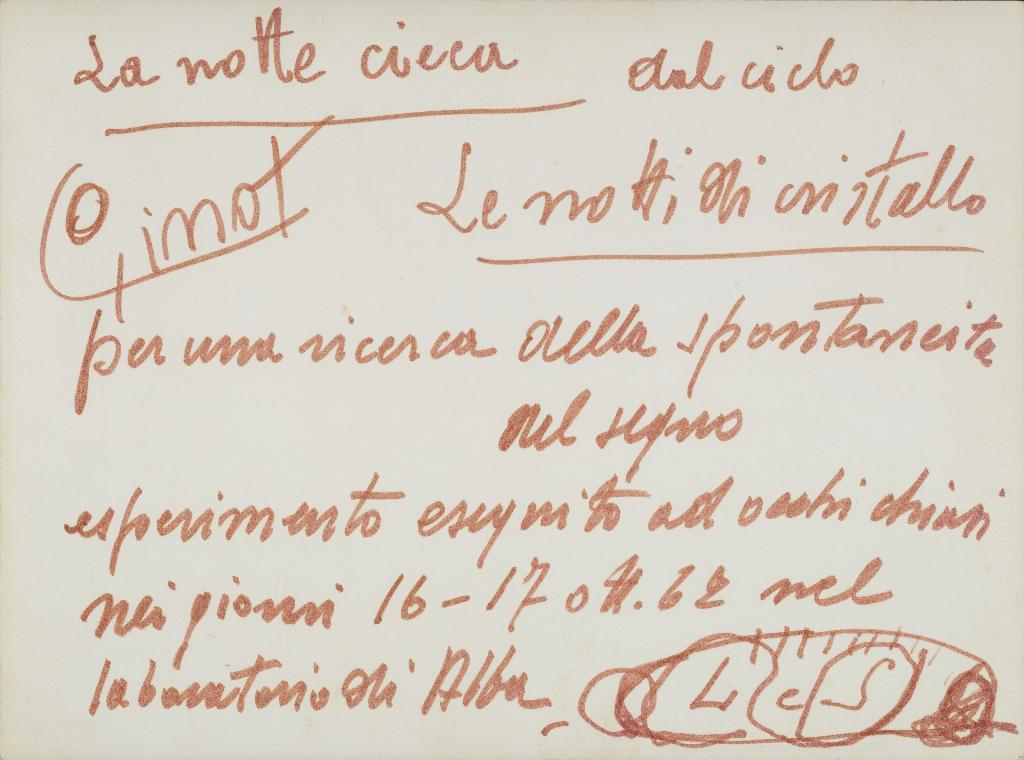 La notte cieca dal ciclo
Le notti di cristallo
per una ricerca della spontaneità
del segno
esperimento eseguito ad occhi chiusi
nei giorni 16-17 ott. 62 nel
laboratorio di Alba
L c S